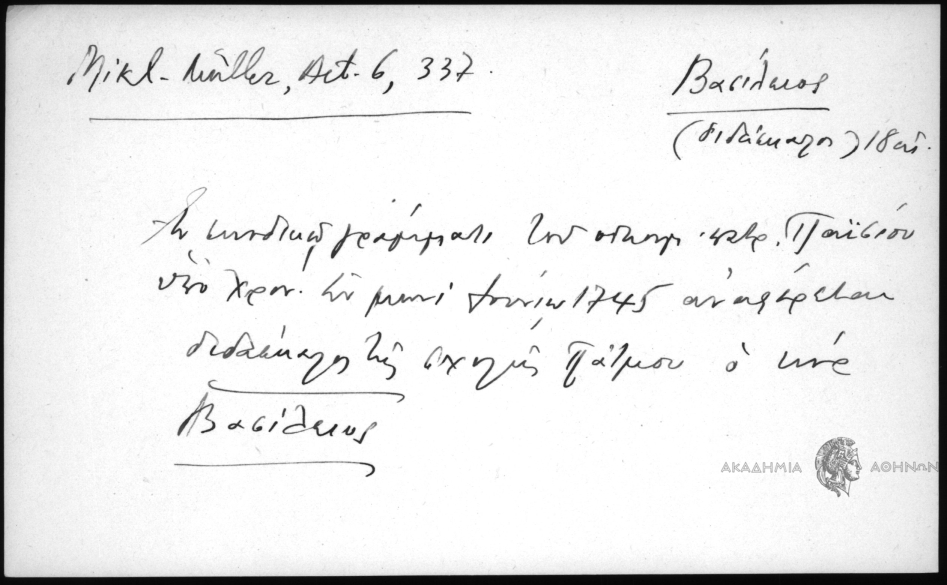 Mikl-Müller, Act. 6, 337.
Βασίλειος
(διδάσκαλος) 18 αἰ.
Ἐν συνοδικῷ γράμματι τοῦ οἰκουμ. πατρ. Παϊσίου
ὑπὸ χρον. ἐν μηνί Ἰουνίῳ 1745 ἀναφέρεται
διδάσκαλος τῆς σχολῆς Πάτμου ὁ κύρ
Βασίλειος
ΑΚΑΔΗΜΙΑ ΑΘΗΝΩΝ